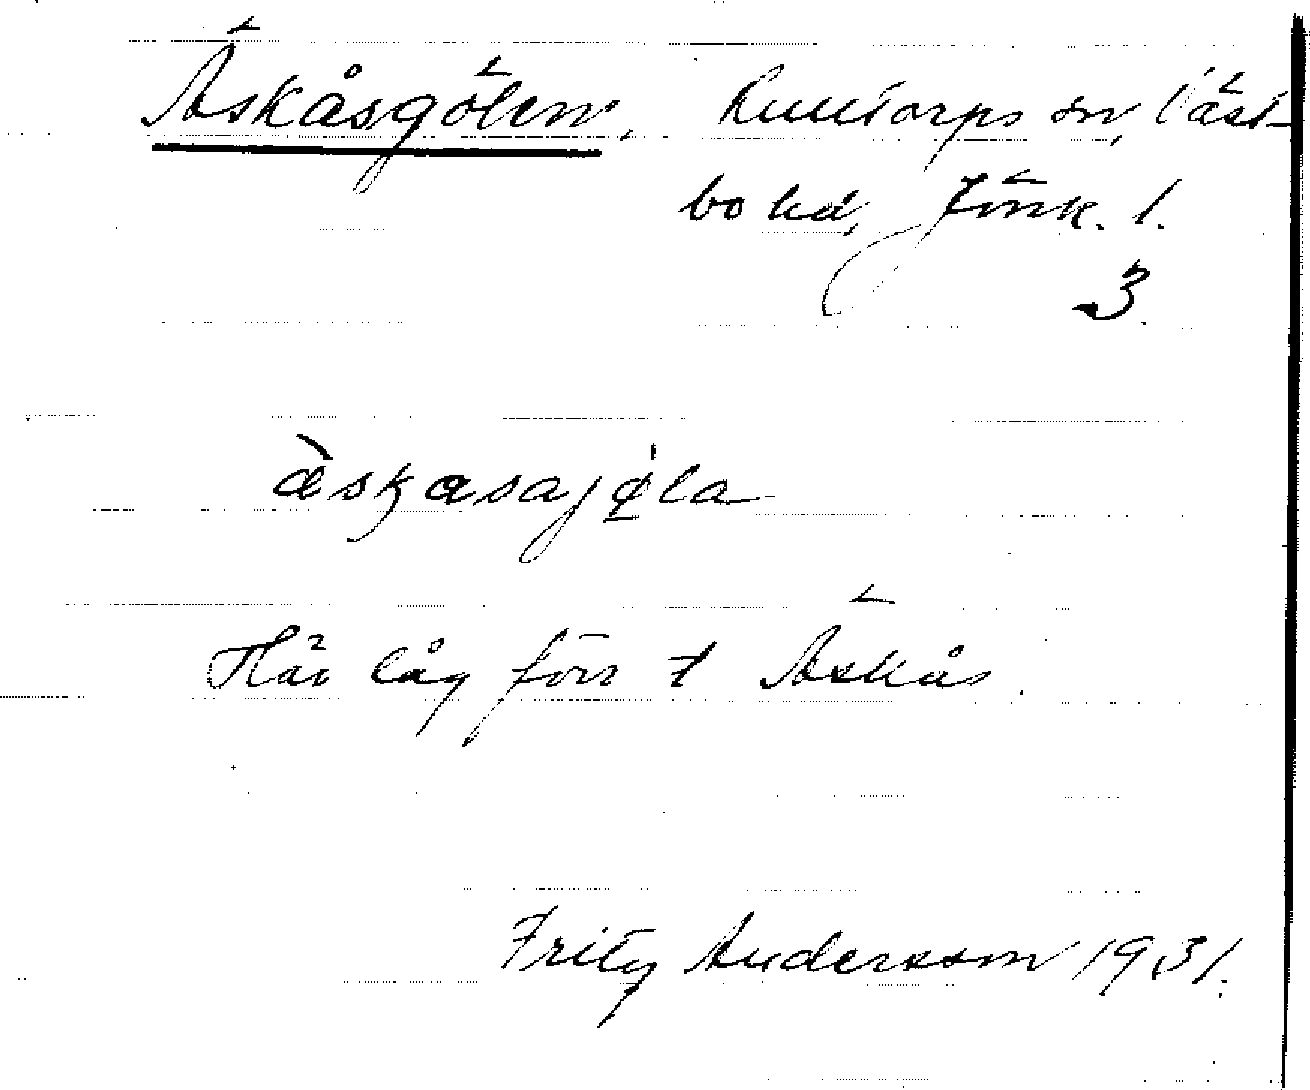 Äskåsgölen, Runtorps sn, Väst-
bo hd, Jönk. l.
3
àskasajø̨la
Här låg förr t Äskås.
Fritz Andersson 1931.